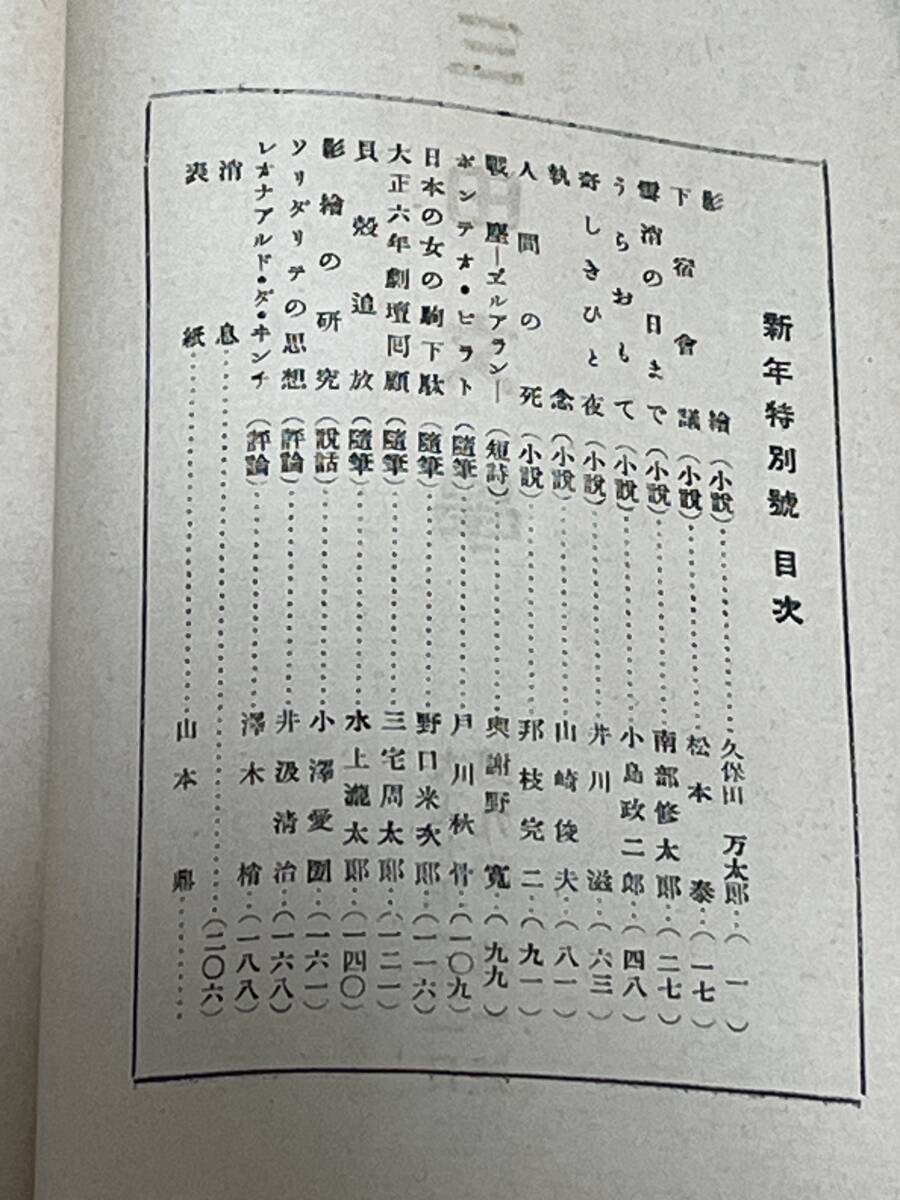 新年特別號 目次
影繪(小說)……久保田万太郎…(一)
下宿會議(小說)……松本泰…(一七)
雪消の日まで(小說)……南部修太郎…(二七)
うらおもて(小說)……小島政二郎…(四八)
奇しきひと夜(小說)……井川滋…(六三)
執念(小說)……山崎俊夫…(八一)
人間の死(小說)……邦枝完二…(九一)
戰塵―ヹルアラン―(短詩)……與謝野寬…(九九)
ポンテオ・ピラト(隨筆)……戶川秋骨…(一〇九)
日本の女の駒下駄(隨筆)……野口米次郎…(一一六)
大正六年劇壇回顧(隨筆)……三宅周太郎…(一二一)
貝殼追放(隨筆)……水上瀧太郎…(一四〇)
影繪の硏究(說話)……小澤愛圀…(一六一)
ソリダリテの思想(評論)……井汲淸治…(一六八)
レオナアルド・ダ・ヰンチ(評論)……澤木梢…(一八八)
消息……(二〇六)
表紙……山本鼎……